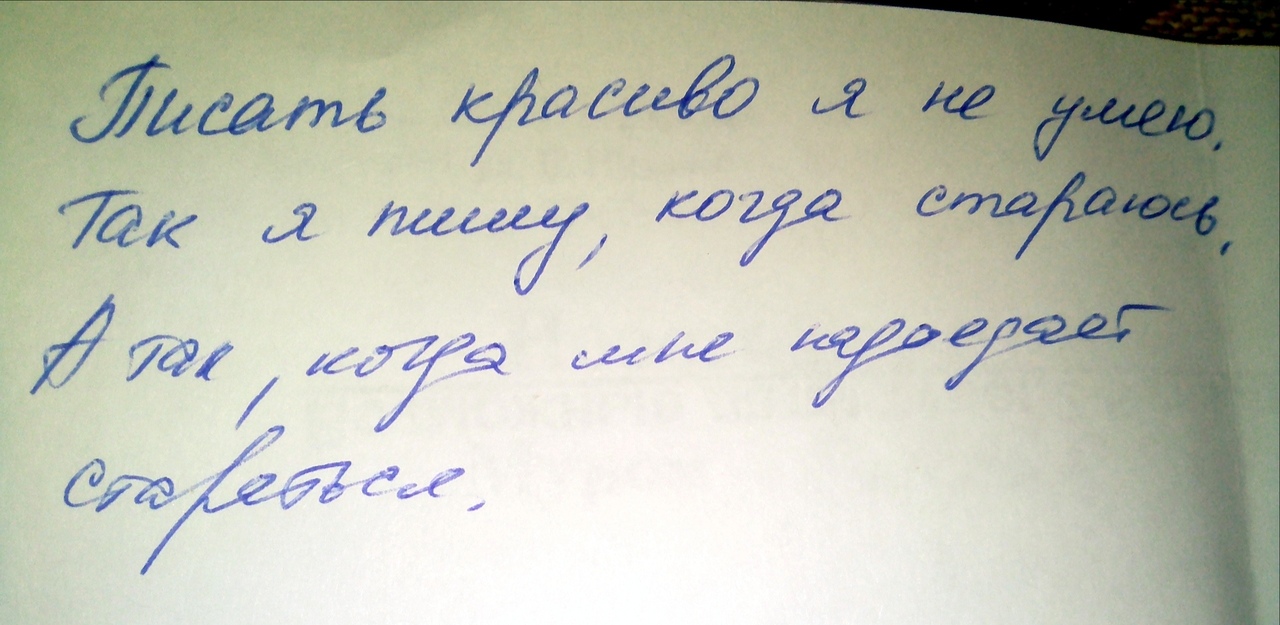 Писать красиво я не умею.
Так я пишу, когда стараюсь,
А так, когда мне надоедает
стараться.